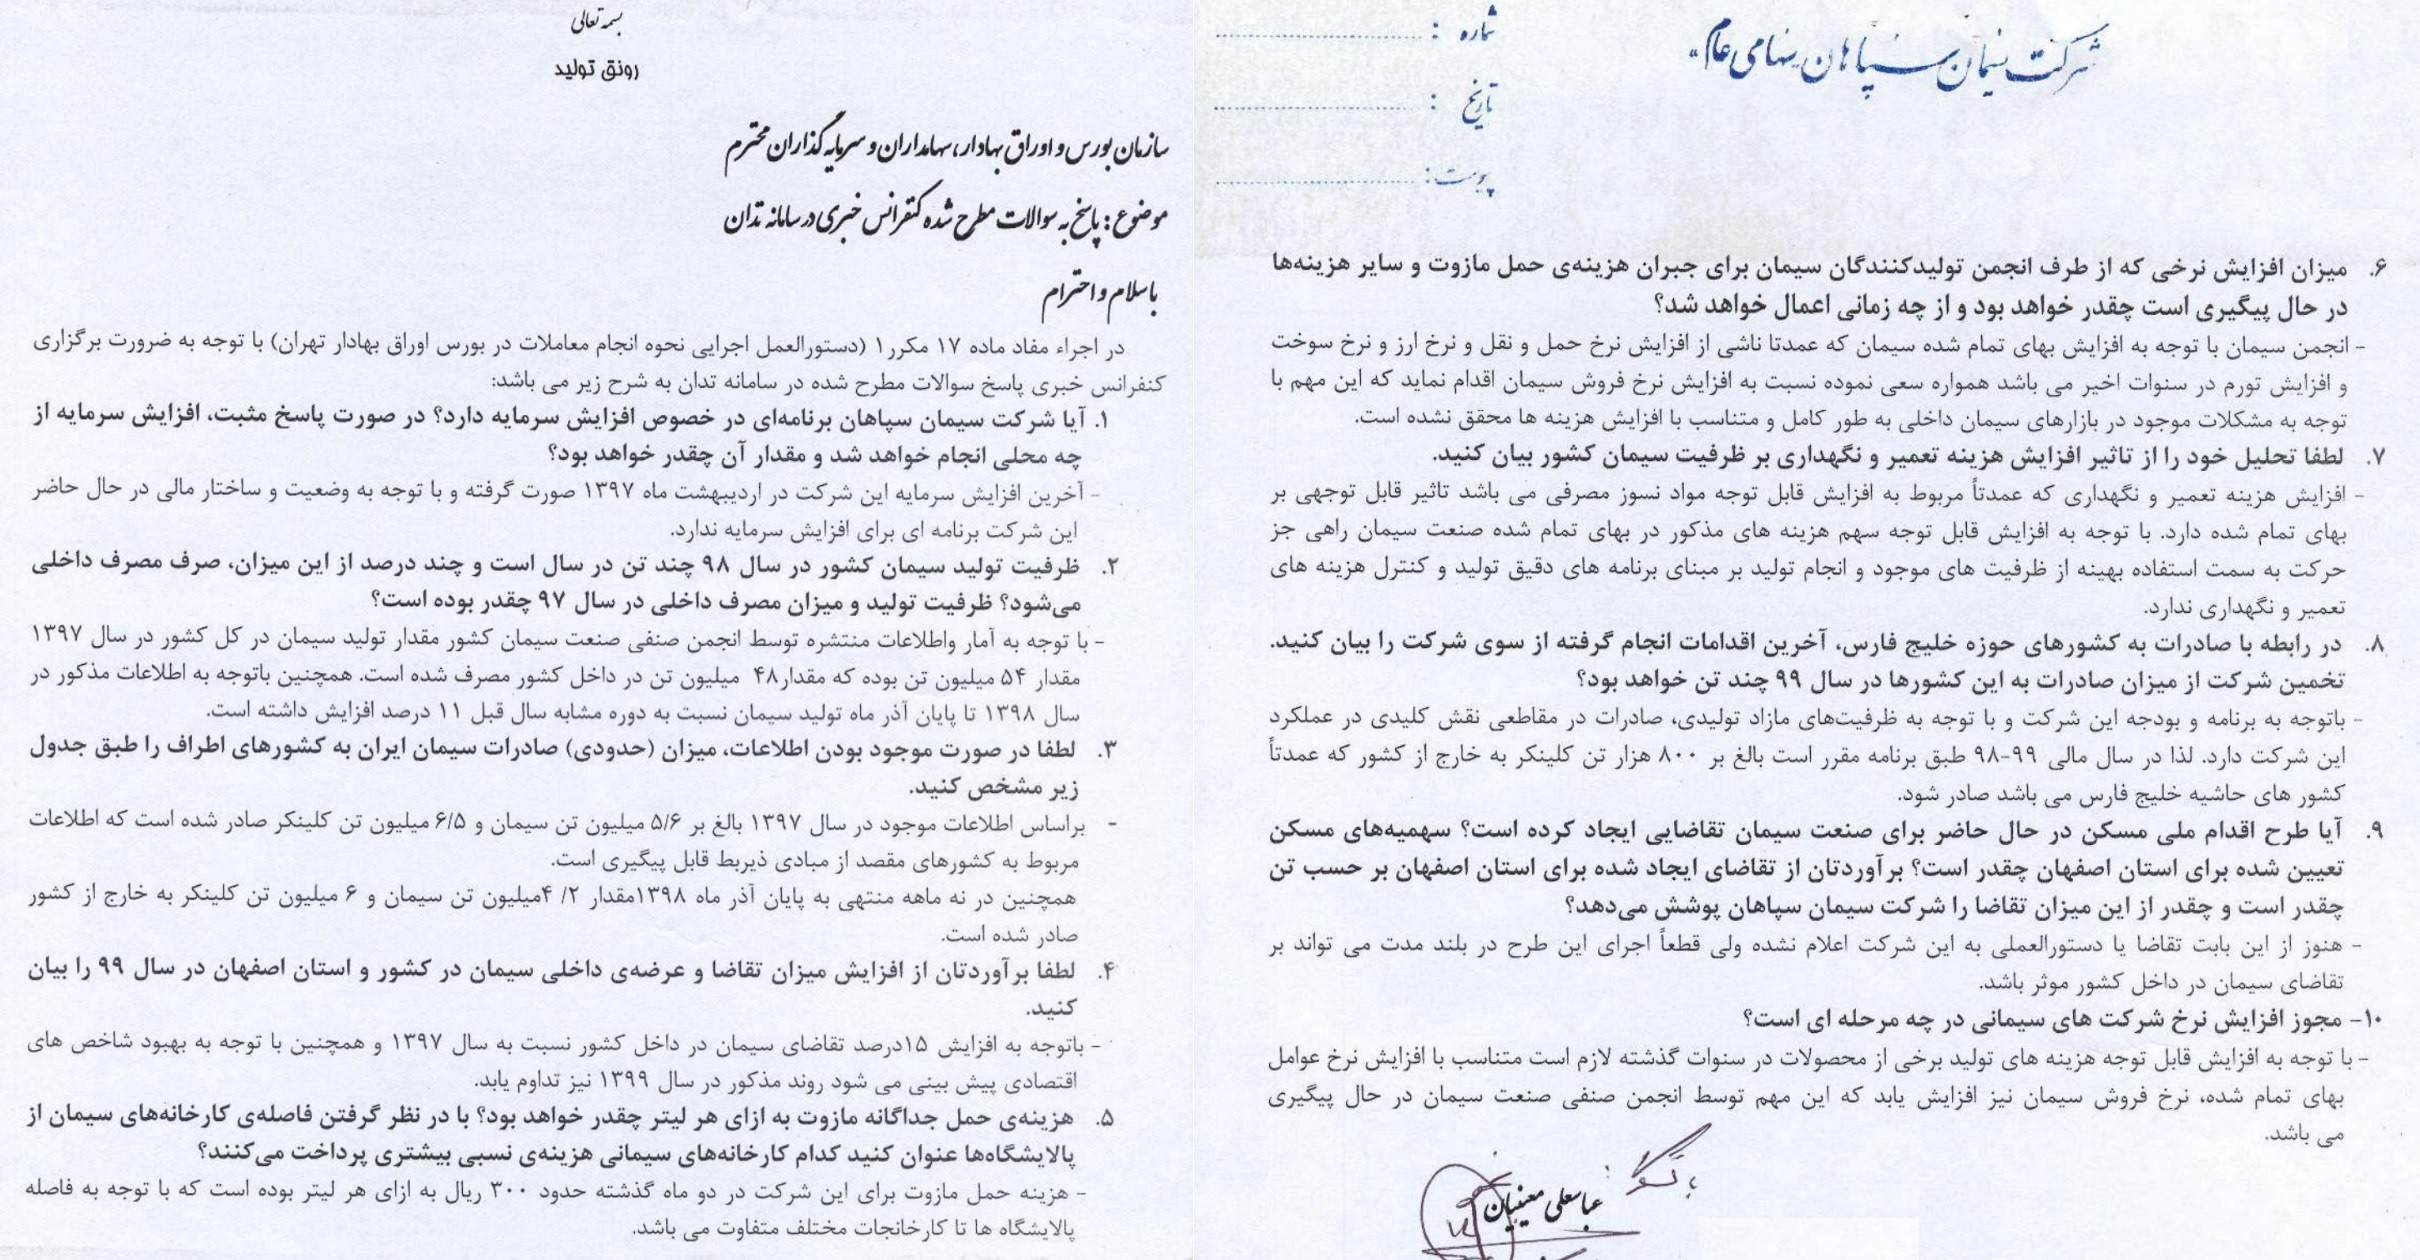 بسمه تعالی
رونق تولید
سازمان بورس و اوراق بهادار، سهامداران و سرمایه گذاران محترم
موضوع: پاسخ به سوالات مطرح شده کنفرانس خبری در سامانه تدان
با سلام و احترام
در اجراء مفاد ماده ۱۷ مکرر۱ (دستورالعمل اجرایی نحوه انجام معاملات در بورس اوراق بهادار تهران) با توجه به ضرورت برگزاری
کنفرانس خبری پاسخ سوالات مطرح شده در سامانه تدان به شرح زیر می باشد:
۱. آیا شرکت سیمان سپاهان برنامه‌ای در خصوص افزایش سرمایه دارد؟ در صورت پاسخ مثبت، افزایش سرمایه از
چه محلی انجام خواهد شد و مقدار آن چقدر خواهد بود؟
- آخرین افزایش سرمایه این شرکت در اردیبهشت ماه ۱۳۹۷ صورت گرفته و با توجه به وضعیت و ساختار مالی در حال حاضر
این شرکت برنامه ای برای افزایش سرمایه ندارد.
۲. ظرفیت تولید سیمان کشور در سال ۹۸ چند تن در سال است و چند درصد از این میزان، صرف مصرف داخلی
می‌شود؟ ظرفیت تولید و میزان مصرف داخلی در سال ۹۷ چقدر بوده است؟
- با توجه به آمار واطلاعات منتشره توسط انجمن صنفی صنعت سیمان کشور مقدار تولید سیمان در کل کشور در سال ۱۳۹۷
مقدار ۵۴ میلیون تن بوده که مقدار۴۸ میلیون تن در داخل کشور مصرف شده است. همچنین باتوجه به اطلاعات مذکور در
سال ۱۳۹۸ تا پایان آذر ماه تولید سیمان نسبت به دوره مشابه سال قبل ۱۱ درصد افزایش داشته است.
۳. لطفا در صورت موجود بودن اطلاعات، میزان (حدودی) صادرات سیمان ایران به کشورهای اطراف را طبق جدول
زیر مشخص کنید.
- براساس اطلاعات موجود در سال ۱۳۹۷ بالغ بر ۵/۶ میلیون تن سیمان و ۶/۵ میلیون تن کلینکر صادر شده است که اطلاعات
مربوط به کشورهای مقصد از مبادی ذیربط قابل پیگیری است.
همچنین در نه ماهه منتهی به پایان آذر ماه ۱۳۹۸مقدار ۲/ ۴میلیون تن سیمان و ۶ میلیون تن کلینکر به خارج از کشور
صادر شده است.
۴. لطفا برآوردتان از افزایش میزان تقاضا و عرضه‌ی داخلی سیمان در کشور و استان اصفهان در سال ۹۹ را بیان
کنید.
- باتوجه به افزایش ۱۵درصد تقاضای سیمان در داخل کشور نسبت به سال ۱۳۹۷ و همچنین با توجه به بهبود شاخص های
اقتصادی پیش بینی می شود روند مذکور در سال ۱۳۹۹ نیز تداوم یابد.
۵. هزینه‌ی حمل جداگانه مازوت به ازای هر لیتر چقدر خواهد بود؟ با در نظر گرفتن فاصله‌ی کارخانه‌های سیمان از
پالایشگاه‌ها عنوان کنید کدام کارخانه‌های سیمانی هزینه‌ی نسبی بیشتری پرداخت می‌کنند؟
- هزینه حمل مازوت برای این شرکت در دو ماه گذشته حدود ۳۰۰ ریال به ازای هر لیتر بوده است که با توجه به فاصله
پالایشگاه ها تا کارخانجات مختلف متفاوت می باشد.
شرکت سیمان سپاهان سهامی عام
شماره :
تاریخ :
پیوست:
۶. میزان افزایش نرخی که از طرف انجمن تولیدکنندگان سیمان برای جبران هزینه‌ی حمل مازوت و سایر هزینه‌ها
در حال پیگیری است چقدر خواهد بود و از چه زمانی اعمال خواهد شد؟
- انجمن سیمان با توجه به افزایش بهای تمام شده سیمان که عمدتا ناشی از افزایش نرخ حمل و نقل و نرخ ارز و نرخ سوخت
و افزایش تورم در سنوات اخیر می باشد همواره سعی نموده نسبت به افزایش نرخ فروش سیمان اقدام نماید که این مهم با
توجه به مشکلات موجود در بازارهای سیمان داخلی به طور کامل و متناسب با افزایش هزینه ها محقق نشده است.
۷. لطفا تحلیل خود را از تاثیر افزایش هزینه تعمیر و نگهداری بر ظرفیت سیمان کشور بیان کنید.
- افزایش هزینه تعمیر و نگهداری که عمدتاً مربوط به افزایش قابل توجه مواد نسوز مصرفی می باشد تاثیر قابل توجهی بر
بهای تمام شده دارد. با توجه به افزایش قابل توجه سهم هزینه های مذکور در بهای تمام شده صنعت سیمان راهی جز
حرکت به سمت استفاده بهینه از ظرفیت های موجود و انجام تولید بر مبنای برنامه های دقیق تولید و کنترل هزینه های
تعمیر و نگهداری ندارد.
۸. در رابطه با صادرات به کشورهای حوزه خلیج فارس، آخرین اقدامات انجام گرفته از سوی شرکت را بیان کنید.
تخمین شرکت از میزان صادرات به این کشورها در سال ۹۹ چند تن خواهد بود؟
- باتوجه به برنامه و بودجه این شرکت و با توجه به ظرفیت‌های مازاد تولیدی، صادرات در مقاطعی نقش کلیدی در عملکرد
این شرکت دارد. لذا در سال مالی ۹۹-۹۸ طبق برنامه مقرر است بالغ بر ۸۰۰ هزار تن کلینکر به خارج از کشور که عمدتاً
کشور های حاشیه خلیج فارس می باشد صادر شود.
۹. آیا طرح اقدام ملی مسکن در حال حاضر برای صنعت سیمان تقاضایی ایجاد کرده است؟ سهمیه‌های مسکن
تعیین شده برای استان اصفهان چقدر است؟ برآوردتان از تقاضای ایجاد شده برای استان اصفهان بر حسب تن
چقدر است و چقدر از این میزان تقاضا را شرکت سیمان سپاهان پوشش می‌دهد؟
- هنوز از این بابت تقاضا یا دستورالعملی به این شرکت اعلام نشده ولی قطعاً اجرای این طرح در بلند مدت می تواند بر
تقاضای سیمان در داخل کشور موثر باشد.
۱۰- مجوز افزایش نرخ شرکت های سیمانی در چه مرحله ای است؟
- با توجه به افزایش قابل توجه هزینه های تولید برخی از محصولات در سنوات گذشته لازم است متناسب با افزایش نرخ عوامل
بهای تمام شده، نرخ فروش سیمان نیز افزایش یابد که این مهم توسط انجمن صنفی صنعت سیمان در حال پیگیری
می باشد.
با تشکر
عباسعلی معینیان